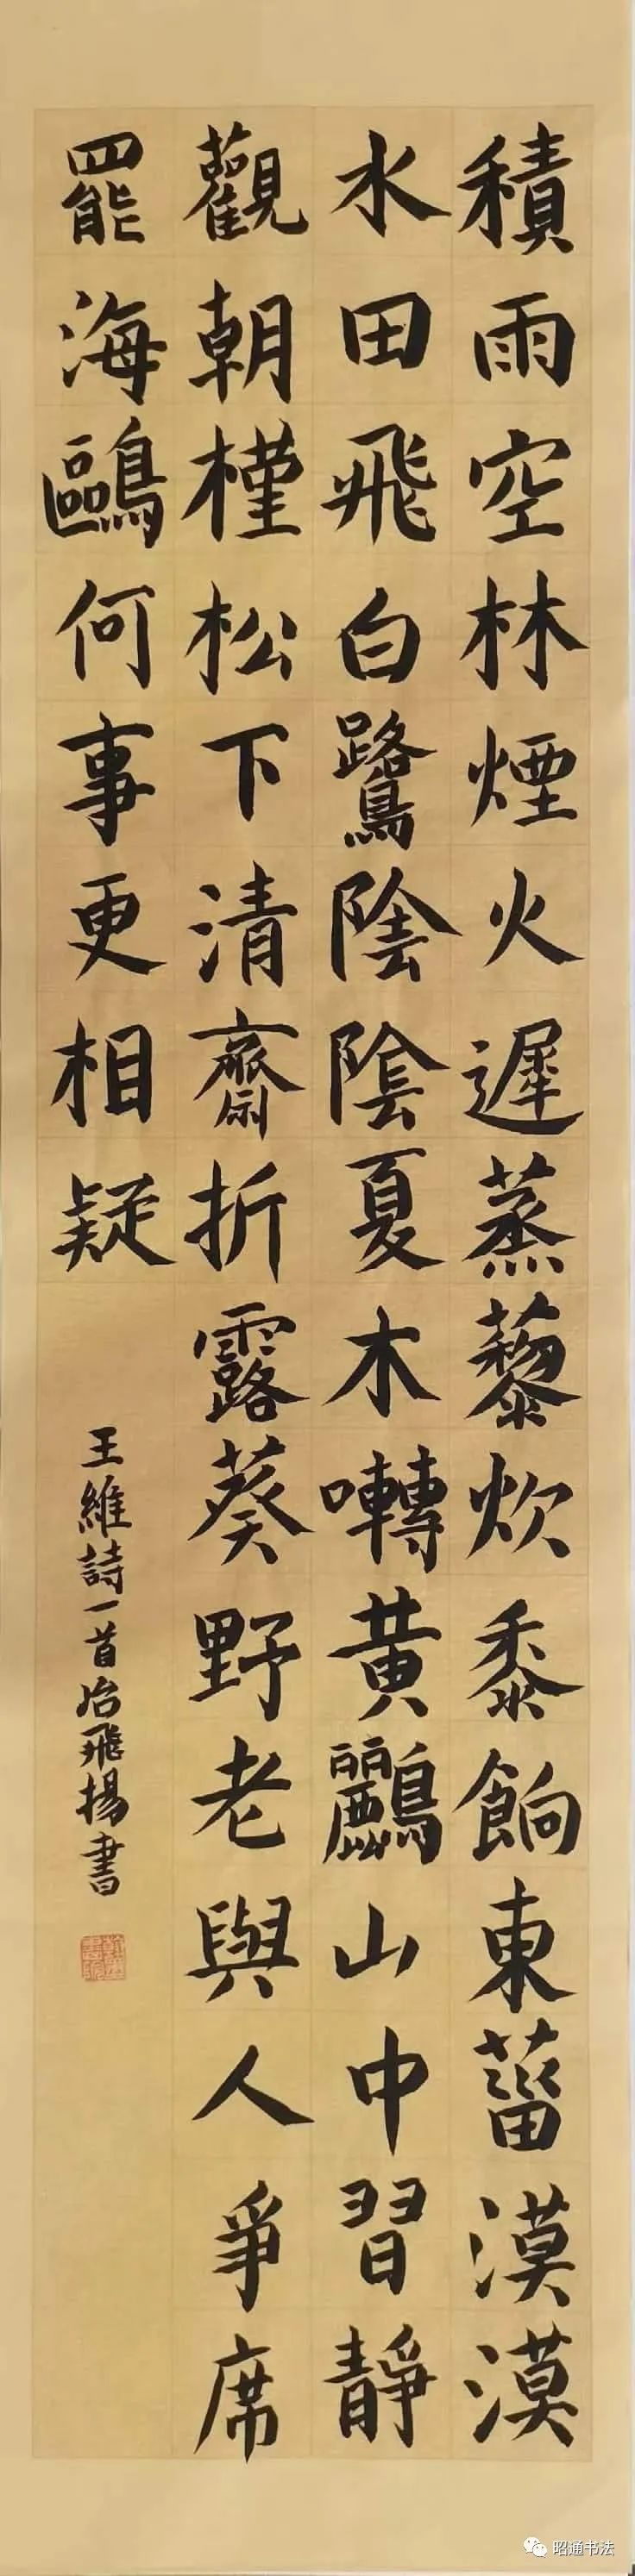 積雨空林煙火遲蒸藜炊黍餉東菑漠漠
水田飛白鷺陰陰夏木囀黃鸝山中習靜
觀朝槿松下清齋折露葵野老與人爭席
罷海鷗何事更相疑
王維詩一首冶飛揚書
昭通书法